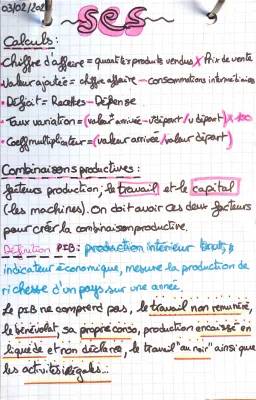 03/02/202
SES
Calculs:
• Chiffre d'affaire = quantité produits vendus X Prix de vente
• Valeur ajoutée = chiffre affaire - consommations intermédiaires
• Déficit = Recettes - Dépense
• Taux variation = (valeur arrivée - v départ / v départ) x 100
• Coeff multiplicateur = (valeur arrivée / valeur départ)
Combinaisons productives:
facteurs production; le travail et le capital
(les machines). On doit avoir ces deux facteurs
pour créer la combinaison productive.
Définition PIB: production intérieur brut,
indicateur économique, mesure la production de
richesse d'un pays sur une année.
Le PIB ne comprend pas, le travail non rémunéré,
le bénévolat, sa propre conso, production encaissé en
liquide et non déclaré, le travail "au noir" ainsi que
les activités illégales...